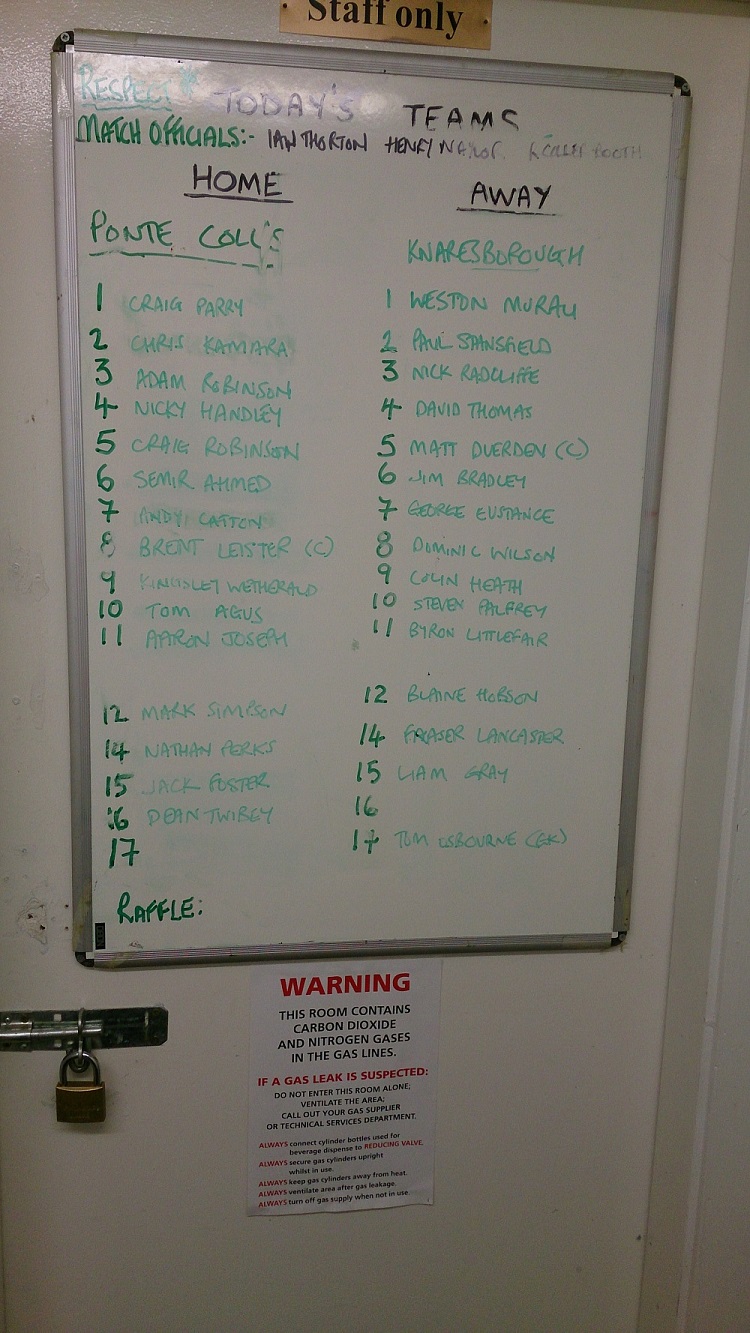 Staff only
RESPECT
TODAY'S TEAMS
MATCH OFFICIALS:- IAN THORTON HENRY NAYLOR BOOTH
HOME
PONTE COLL'S
1 CRAIG PARRY
2 CHRIS KAMARA
3 ADAM ROBINSON
4 NICKY HANDLEY
5 CRAIG ROBINSON
6 SEMIR AHMED
7 ANDY CATTON
8 BRENT LEISTER (C)
9 KINGSLEY WETHERALD
10 TOM AGUS
11 AARON JOSEPH
12 MARK SIMPSON
14 NATHAN PERKS
15 JACK FOSTER
16 DEAN TWIBEY
17
RAFFLE:
AWAY
KNARESBOROUGH
1 WESTON MURRAY
2 PAUL STANSFIELD
3 NICK RADCLIFFE
4 DAVID THOMAS
5 MATT DUERDEN (C)
6 JIM BRADLEY
7 GEORGE EUSTANCE
8 DOMINIC WILSON
9 COLIN HEATH
10 STEVEN PALFREY
11 BYRON LITTLEFAIR
12 BLAINE HOBSON
14 FRASER LANCASTER
15 LIAM GRAY
16
17 TOM OSBOURNE (GK)
WARNING
THIS ROOM CONTAINS
CARBON DIOXIDE
AND NITROGEN GASES
IN THE GAS LINES.
IF A GAS LEAK IS SUSPECTED:
DO NOT ENTER THIS ROOM ALONE;
VENTILATE THE AREA;
CALL OUT YOUR GAS SUPPLIER
OR TECHNICAL SERVICES DEPARTMENT.
ALWAYS connect cylinder bottles used for
beverage dispense to REDUCING VALVE.
ALWAYS secure gas cylinders upright
whilst in use.
ALWAYS keep gas cylinders away from heat.
ALWAYS ventilate area after gas leakage.
ALWAYS turn off gas supply when not in use